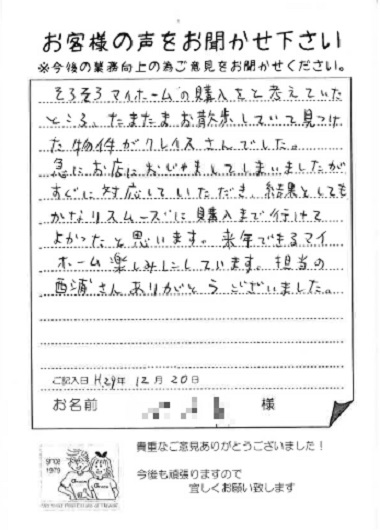 お客様の声をお聞かせ下さい
※今後の業務向上の為ご意見をお聞かせください。
そろそろマイホームの購入をと考えていた
ところ、たまたまお散歩していて見つけ
た物件がクレイスさんでした。
急にお店におじゃましてしまいましたが
すぐに対応していただき、結果としても
かなりスムーズに購入まで行けて
よかったと思います。来年できるマイ
ホーム楽しみにしています。担当の
西浦さんありがとうございました。
ご記入日 H29年 12月 20日
お名前 様
貴重なご意見ありがとうございました！
今後も頑張りますので
宜しくお願い致します